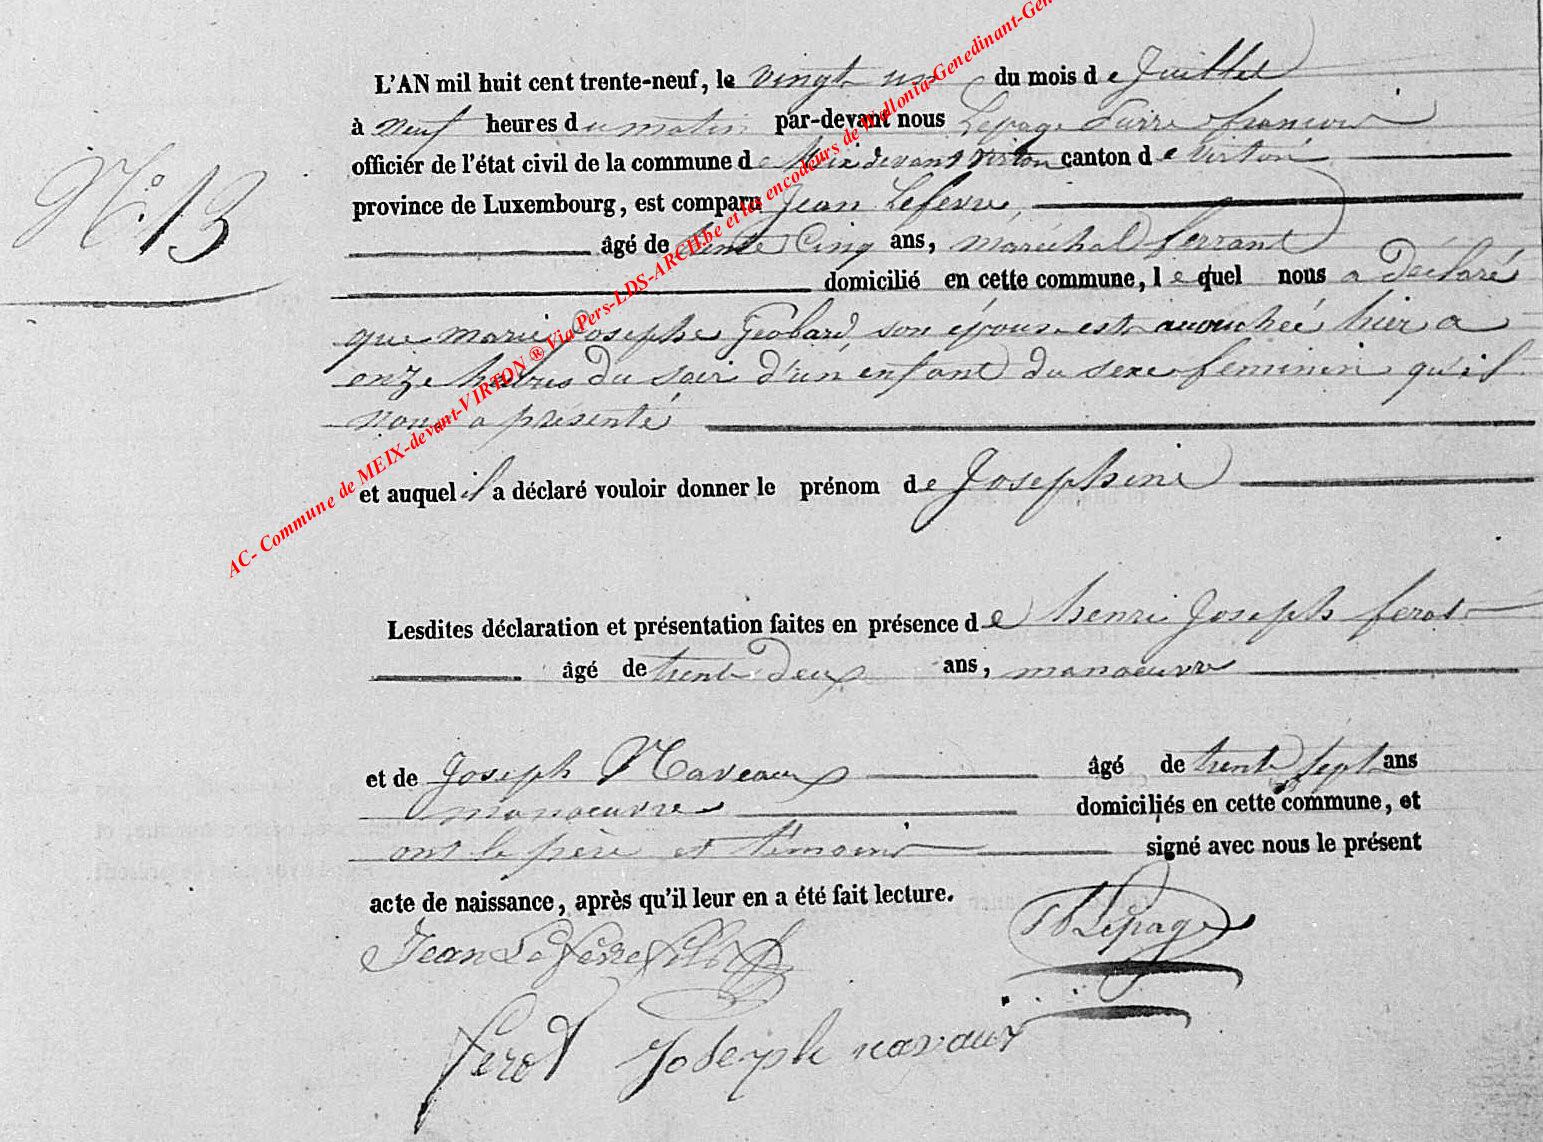 N° 13
L'AN mil huit cent trente-neuf, le vingt un du mois de Juillet
à neuf heures du matin par-devant nous Lepage Pierre françois
officier de l'état civil de la commune de Meix devant Virton canton de Virton
province de Luxembourg, est comparu Jean Lefevre
âgé de trente Cinq ans, maréchal ferrant
domicilié en cette commune, lequel nous a déclaré
que marie Josephe Geobard son épouse est accouchée hier a
onze heures du soir d'un enfant du sexe feminin qu'il
nous a présenté
et auquel il a déclaré vouloir donner le prénom de Josephine
Lesdites déclaration et présentation faites en présence de henri Joseph ferot
âgé de trente deux ans, manoeuvre
et de Joseph Naveaux âgé de trente sept ans
manoeuvre domiciliés en cette commune, et
ont le père et témoins signé avec nous le présent
acte de naissance, après qu'il leur en a été fait lecture.
Jean Lefevre fils Lepage
ferot Joseph navaux
AC- Commune de MEIX-devant-VIRTON ® Via Pers-LDS-ARCH.be et les encodeurs de Wallonia-Genedinant-Gen